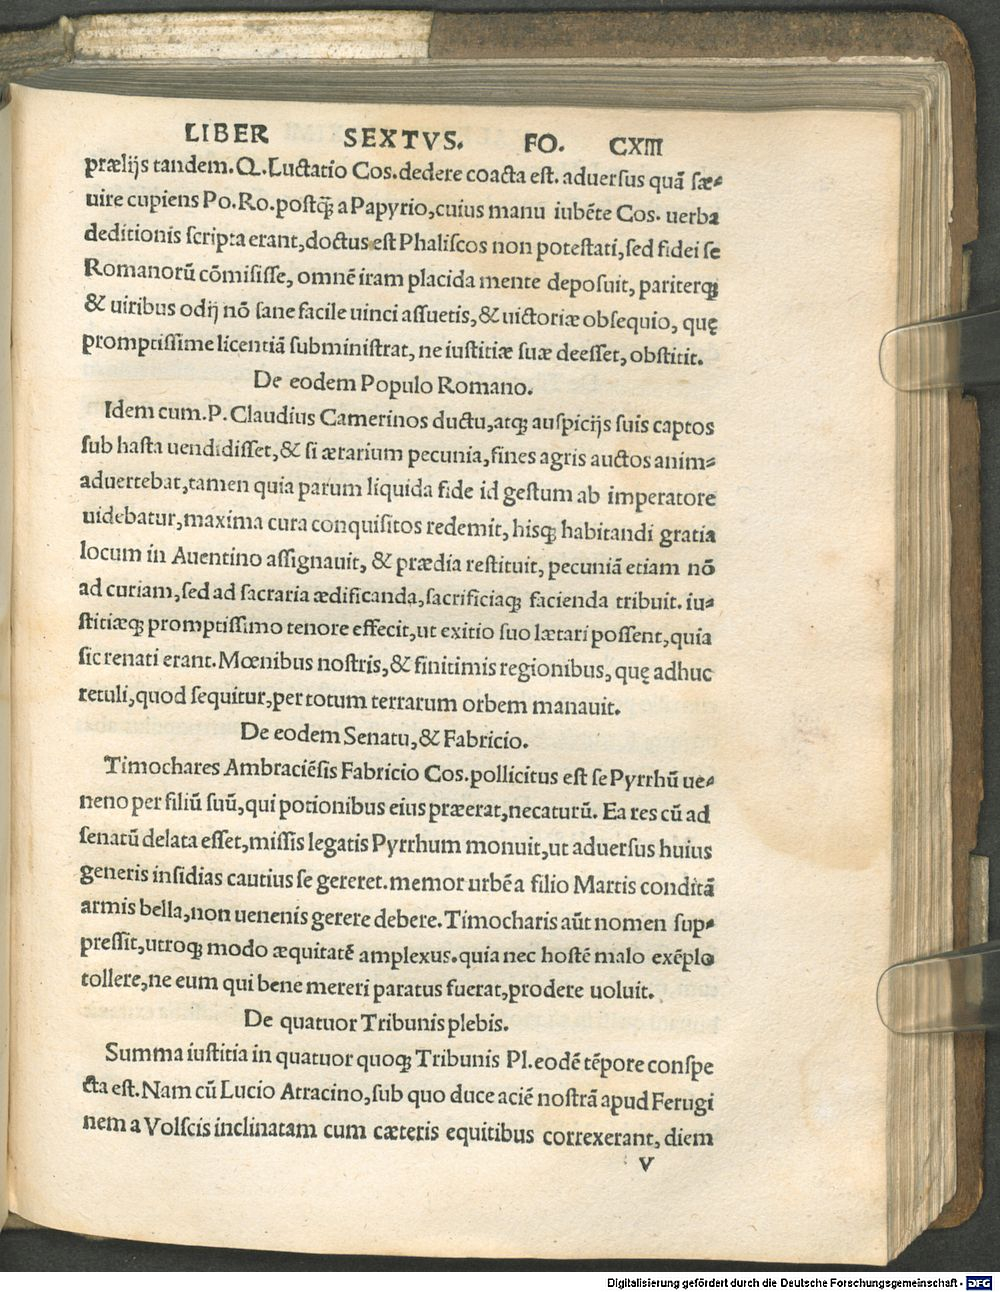 LIBER SEXTVS. FO. CXIII
prælijs tandem. Q. Luctatio Cos. dedere coacta est. aduersus quā sæ⸗
uire cupiens Po. Ro. postq̄; a Papyrio, cuius manu iubēte Cos. uerba
deditionis scripta erant, doctus est Phaliscos non potestati, sed fidei se
Romanorū cōmisisse, omnē iram placida mente deposuit, pariterq;
& uiribus odij nō sane facile uinci assuetis, & uictoriæ obsequio, quę
promptissime licentiā subministrat, ne iustitiæ suæ deesset, obstitit.
De eodem Populo Romano.
Idem cum. P. Claudius Camerinos ductu, atq; auspicijs suis captos
sub hasta uendidisset, & si ærarium pecunia, fines agris auctos anim⸗
aduertebat, tamen quia parum liquida fide id gestum ab imperatore
uidebatur, maxima cura conquisitos redemit, hisq; habitandi gratia
locum in Auentino assignauit, & prædia restituit, pecuniā etiam nō
ad curiam, sed ad sacraria ædificanda, sacrificiaq; facienda tribuit. iu⸗
stitiæq; promptissimo tenore effecit, ut exitio suo lætari possent, quia
sic renati erant. Mœnibus nostris, & finitimis regionibus, quę adhuc
retuli, quod sequitur, per totum terrarum orbem manauit.
De eodem Senatu, & Fabricio.
Timochares Ambraciēsis Fabricio Cos. pollicitus est se Pyrrhū ue⸗
neno per filiū suū, qui potionibus eius præerat, necaturū. Ea res cū ad
senatū delata esset, missis legatis Pyrrhum monuit, ut aduersus huius
generis insidias cautius se gereret. memor urbē a filio Martis conditā
armis bella, non uenenis gerere debere. Timocharis aūt nomen sup⸗
pressit, utroq; modo æquitatē amplexus. quia nec hostē malo exēplo
tollere, ne eum qui bene mereri paratus fuerat, prodere uoluit.
De quatuor Tribunis plebis.
Summa iustitia in quatuor quoq; Tribunis Pl. eodē tēpore conspe
cta est. Nam cū Lucio Atracino, sub quo duce aciē nostrā apud Ferugi
nem a Volscis inclinatam cum cæteris equitibus correxerant, diem
V
Digitalisierung gefördert durch die Deutsche Forschungsgemeinschaft - DFG